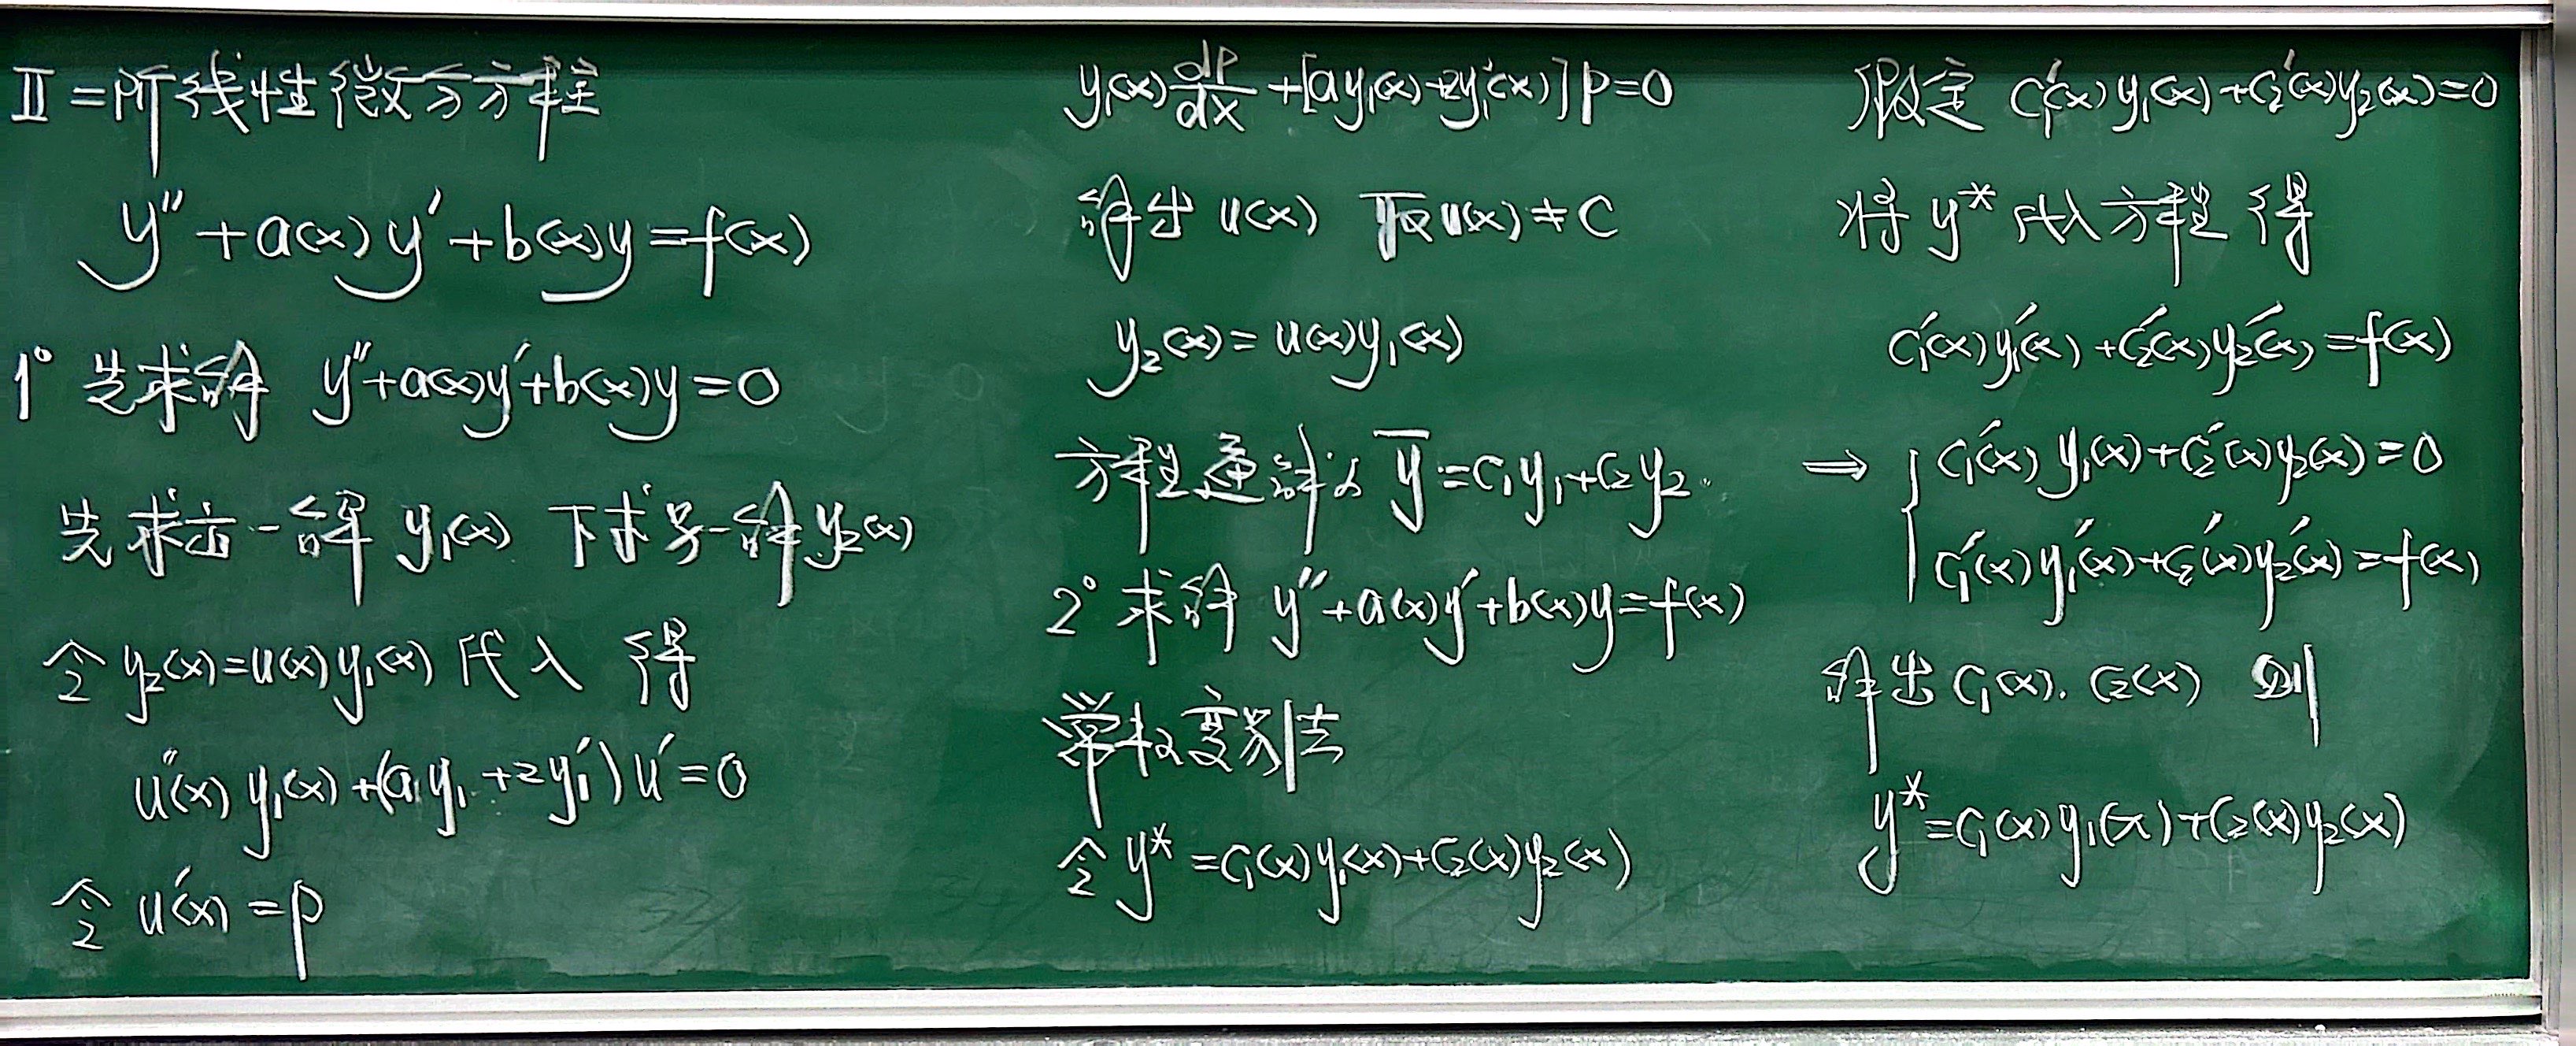 II 二阶线性微分方程
y″+a(x)y′+b(x)y=f(x)
1° 先求解 y″+a(x)y′+b(x)y=0
先求出一解 y₁(x) 下求另一解 y₂(x)
令 y₂(x)=u(x)y₁(x) 代入 得
u″(x)y₁(x)+(a₁y₁+2y₁′)u′=0
令 u′(x)=p
y₁(x)dp/dx+[ay₁(x)+2y₁′(x)]p=0
解出 u(x) 取u(x)≠C
y₂(x)=u(x)y₁(x)
方程通解为 ȳ=C₁y₁+C₂y₂.
2° 求解 y″+a(x)y′+b(x)y=f(x)
常数变易法
令 y*=C₁(x)y₁(x)+C₂(x)y₂(x)
假定 C₁′(x)y₁(x)+C₂′(x)y₂(x)=0
将 y* 代入方程 得
C₁′(x)y₁′(x)+C₂′(x)y₂′(x)=f(x)
⇒ { C₁′(x)y₁(x)+C₂′(x)y₂(x)=0
C₁′(x)y₁′(x)+C₂′(x)y₂′(x)=f(x)
解出 C₁(x). C₂(x) 则
y*=C₁(x)y₁(x)+C₂(x)y₂(x)